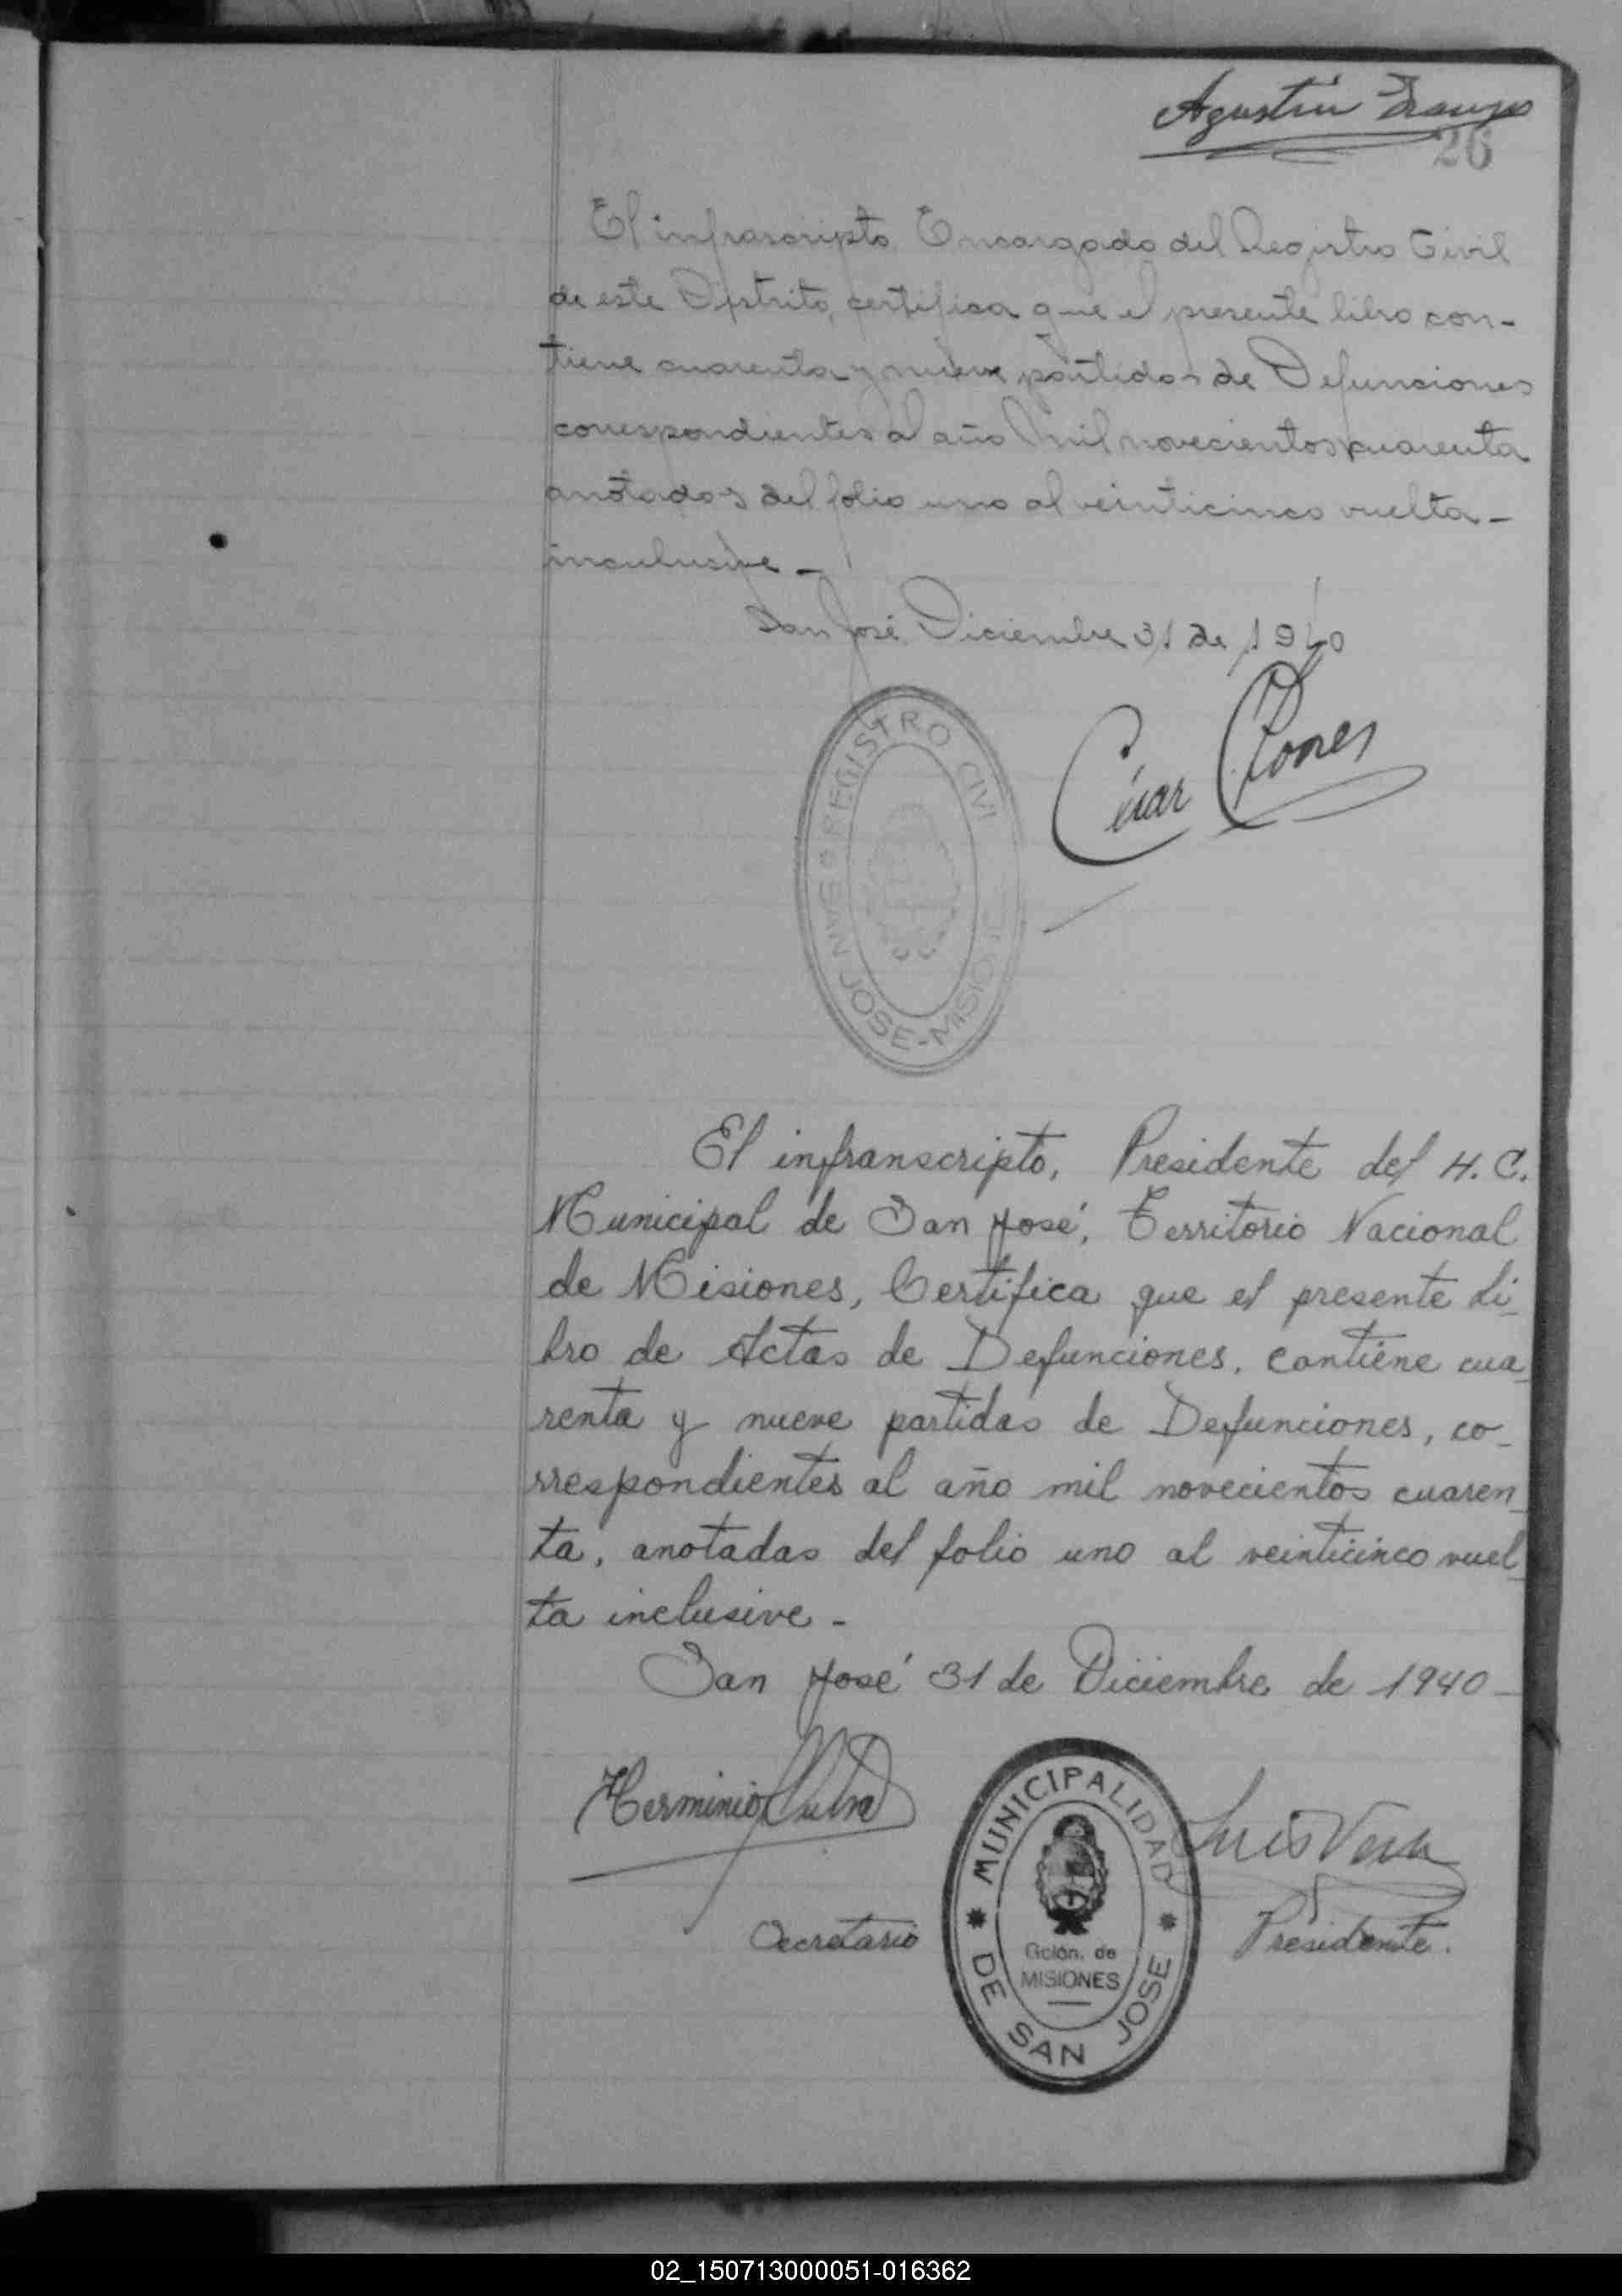 Agustín
26
El infrascripto, Encargado del Registro Civil
de este Distrito, certifica que el presente libro con-
tiene cuarenta y nueve partidas de Defunciones
correspondientes al año Mil novecientos cuarenta
anotadas del folio uno al veinticinco vuelta-
inculusive-
San José Diciembre 31 de 1940
REGISTRO CIVIL
SAN JOSE-MISIONE
César
El infranscripto, Presidente del H. C.
Municipal de San José, Territorio Nacional
de Misiones, Certifica que el presente Li-
bro de Actas de Defunciones, contiene cua-
renta y nueve partidas de Defunciones, co-
rrespondientes al año mil novecientos cuaren-
ta, anotadas del folio uno al veinticinco vuel-
ta inclusive-
San José 31 de Diciembre de 1940-
Herminio
Luis Vera
Secretario
Presidente.
MUNICIPALIDAD
DE SAN JOSE
Gción. de
MISIONES
02_150713000051-016362